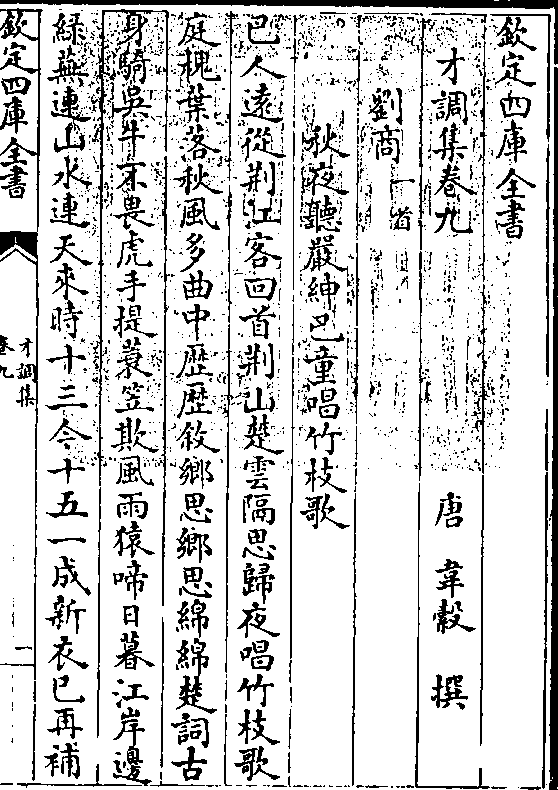 欽定四庫全書
才調集卷九 唐 韋縠 撰
劉商 一首
秋夜聽嚴紳巴童唱竹枝歌
巴人遠從荆江客回首荆山楚雲隔思歸夜唱竹枝歌
庭槐葉落秋風多曲中歴歴敘鄉思鄉思綿綿楚詞古
身騎吳牛不畏虎手提蓑笠欺風雨猿啼日暮江岸邊
緑蕪連山水連天來時十三今十五一成新衣已再補
欽定四庫全書
才調集
卷九
一